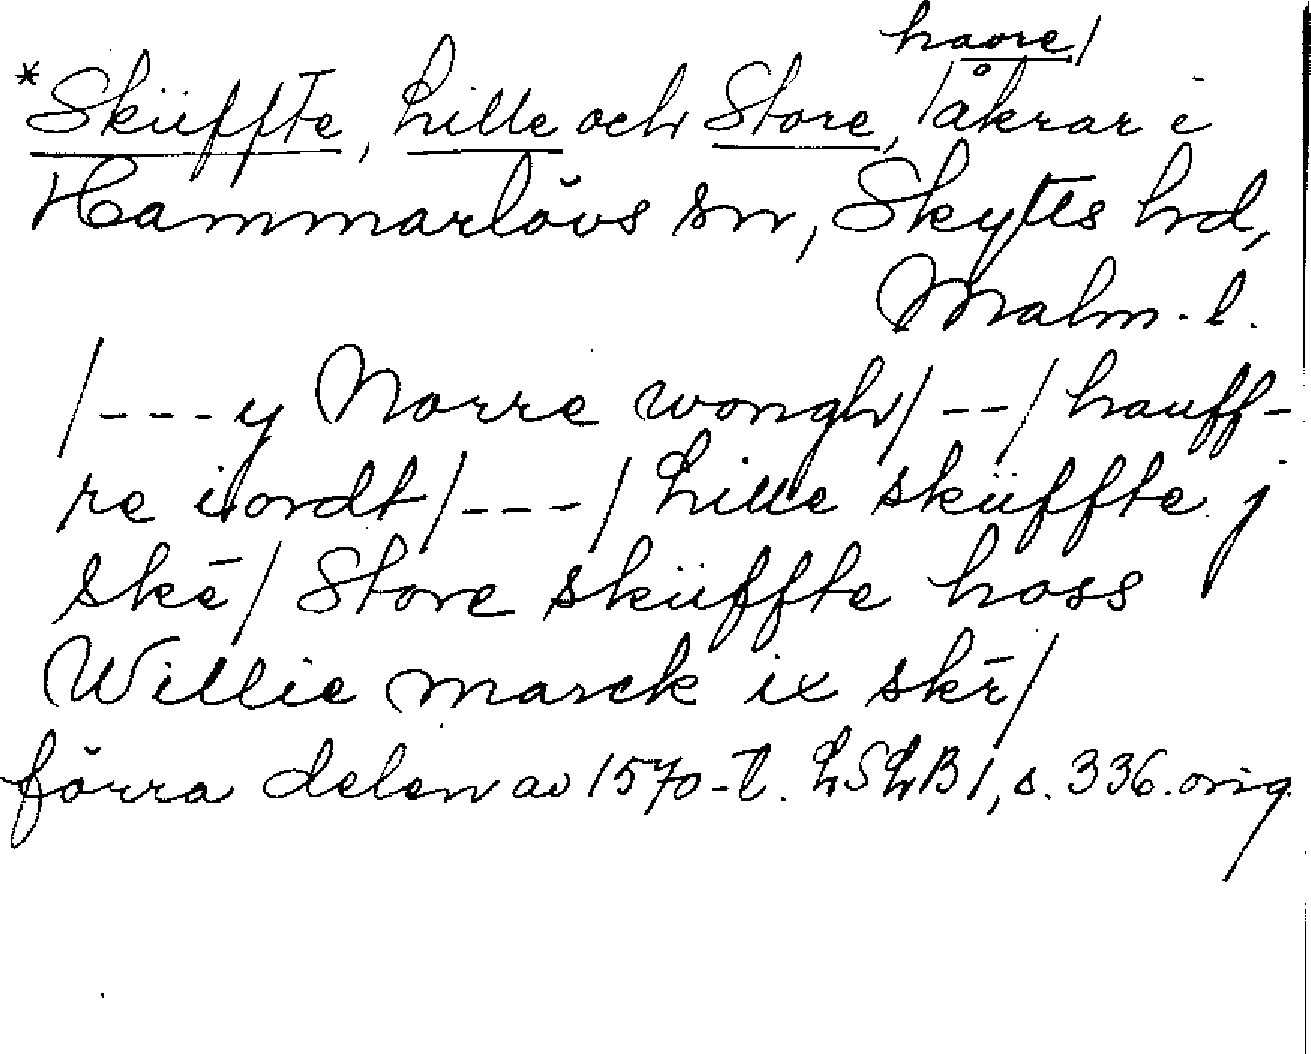 havre/
*Sküffte, Lille och Store, /åkrar i
Hammarlövs sn, Skytts hd,
Malm. l.
/---y Norre wongh/--/hauff-
re iordt/---/Lille sküffte j
skē/ Store sküffte hoss
Willie marck ix skē/
förra delen av 1570-t. LSLB1, s. 336. orig.